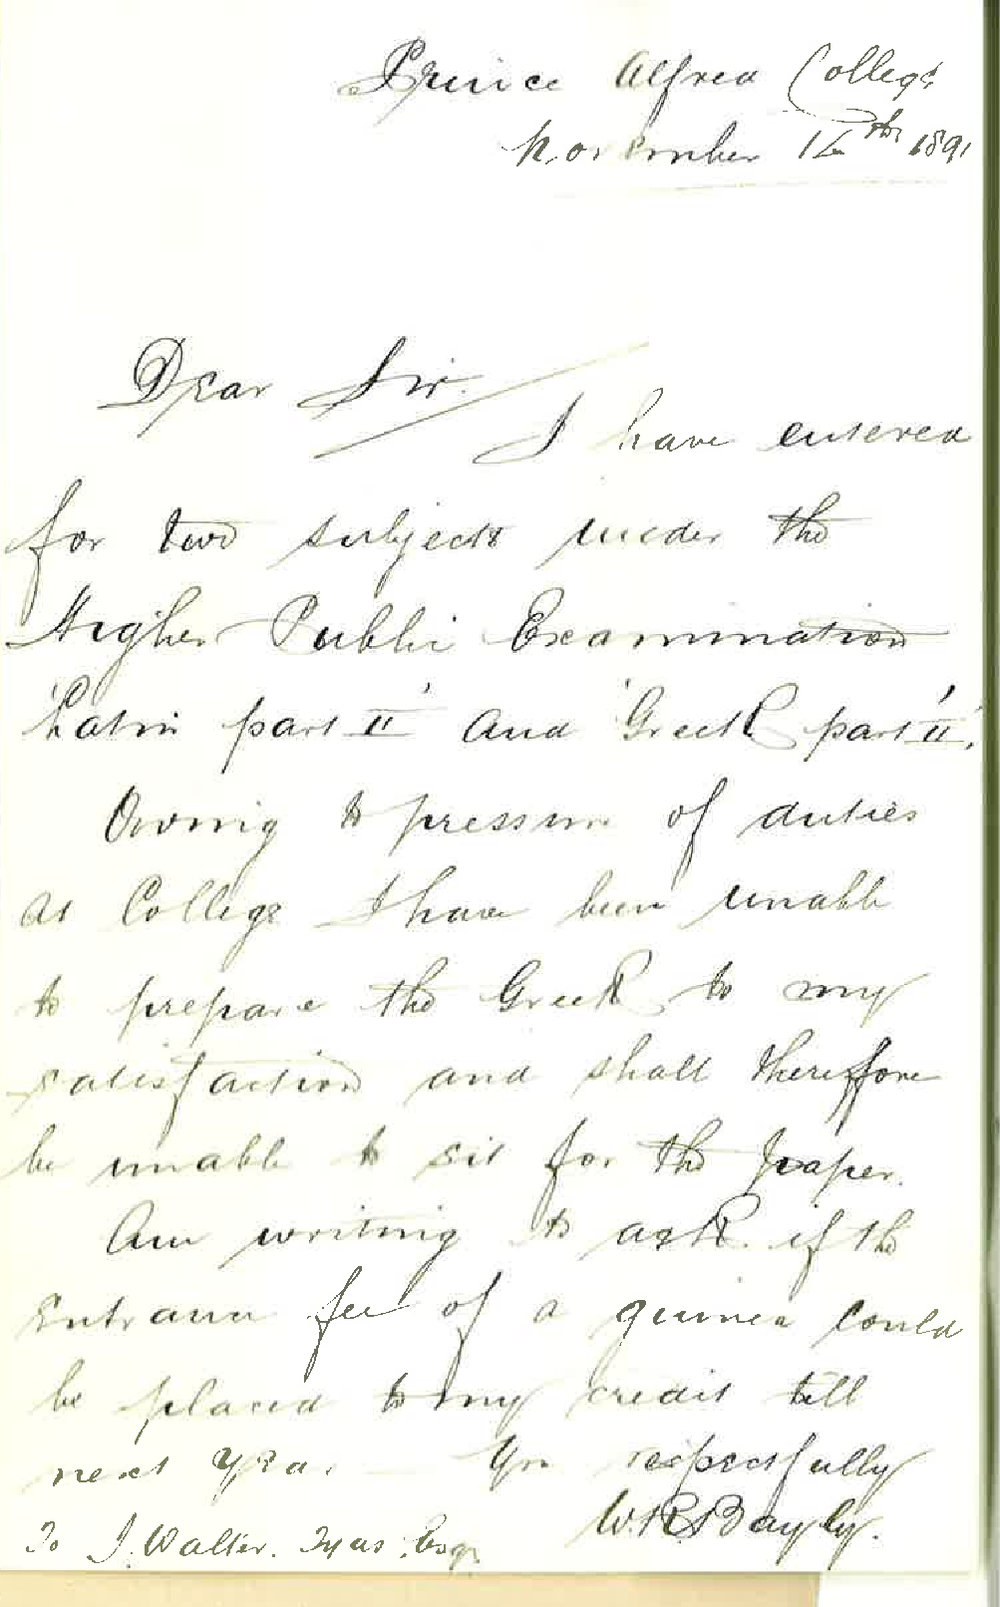 Prince Alfred College
November 12th 1891
Dear Sir.
I have entered
for two subjects under the
Higher Public Examination
'Latin part II' and 'Greek part II'.
Owing to pressure of duties
at College I have been unable
to prepare the Greek to my
satisfaction and shall therefore
be unable to sit for the paper.
Am writing to ask if the
Entrance fee of a guinea could
be placed to my credit till
next year. Yrs respectfully
W. R. Bayly.
To J. Walter. Tyas. Esq.